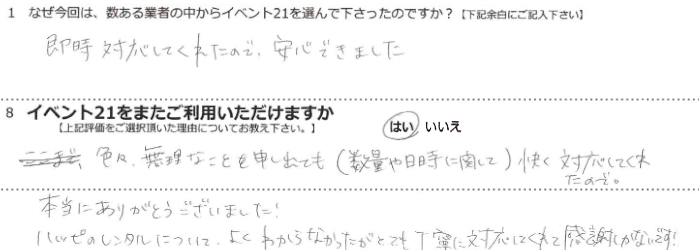 1 なぜ今回は、数ある業者の中からイベント21を選んで下さったのですか？【下記余白にご記入下さい】
即時対応してくれたので、安心できました
8 イベント21をまたご利用いただけますか
【上記評価をご選択頂いた理由についてお教え下さい。】 はい いいえ
色々、無理なことを申し出ても（数量や日時に関して）快く対応してくれ
たので。
本当にありがとうございました！
ハッピのレンタルについて、よくわからなかったがとても丁寧に対応してくれて感謝しかないです！